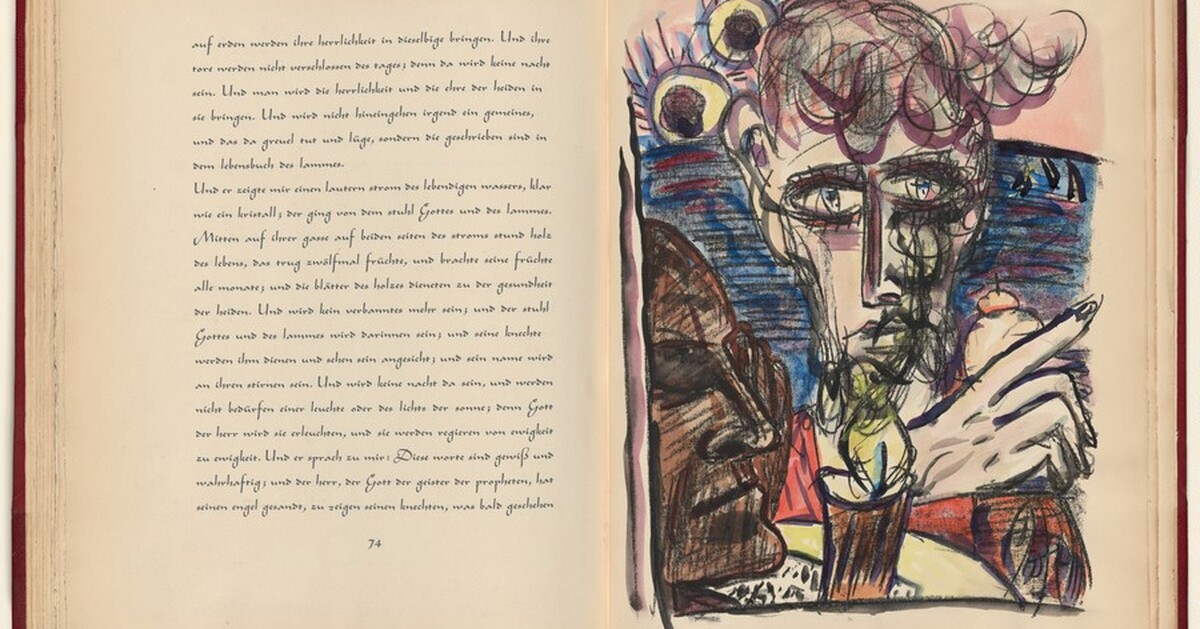 auf erden werden ihre herrlichkeit in dieselbige bringen. Und ihre
tore werden nicht verschlossen des tages; denn da wird keine nacht
sein. Und man wird die herrlichkeit und die ehre der heiden in
sie bringen. Und wird nicht hineingehen irgend ein gemeines,
und das da greuel tut und lüge, sondern die geschrieben sind in
dem lebensbuch des lammes.
Und er zeigte mir einen lautern strom des lebendigen wassers, klar
wie ein kristall; der ging von dem stuhl Gottes und des lammes.
Mitten auf ihrer gasse auf beiden seiten des stroms stund holz
des lebens, das trug zwölfmal früchte, und brachte seine früchte
alle monate; und die blätter des holzes dieneten zu der gesundheit
der heiden. Und wird kein verbanntes mehr sein; und der stuhl
Gottes und des lammes wird darinnen sein; und seine knechte
werden ihm dienen und sehen sein angesicht; und sein name wird
an ihren stirnen sein. Und wird keine nacht da sein, und werden
nicht bedürfen einer leuchte oder des lichts der sonne; denn Gott
der herr wird sie erleuchten, und sie werden regieren von ewigkeit
zu ewigkeit. Und er sprach zu mir: Diese worte sind gewiß und
wahrhaftig; und der herr, der Gott der geister der propheten, hat
seinen engel gesandt, zu zeigen seinen knechten, was bald geschehen
74